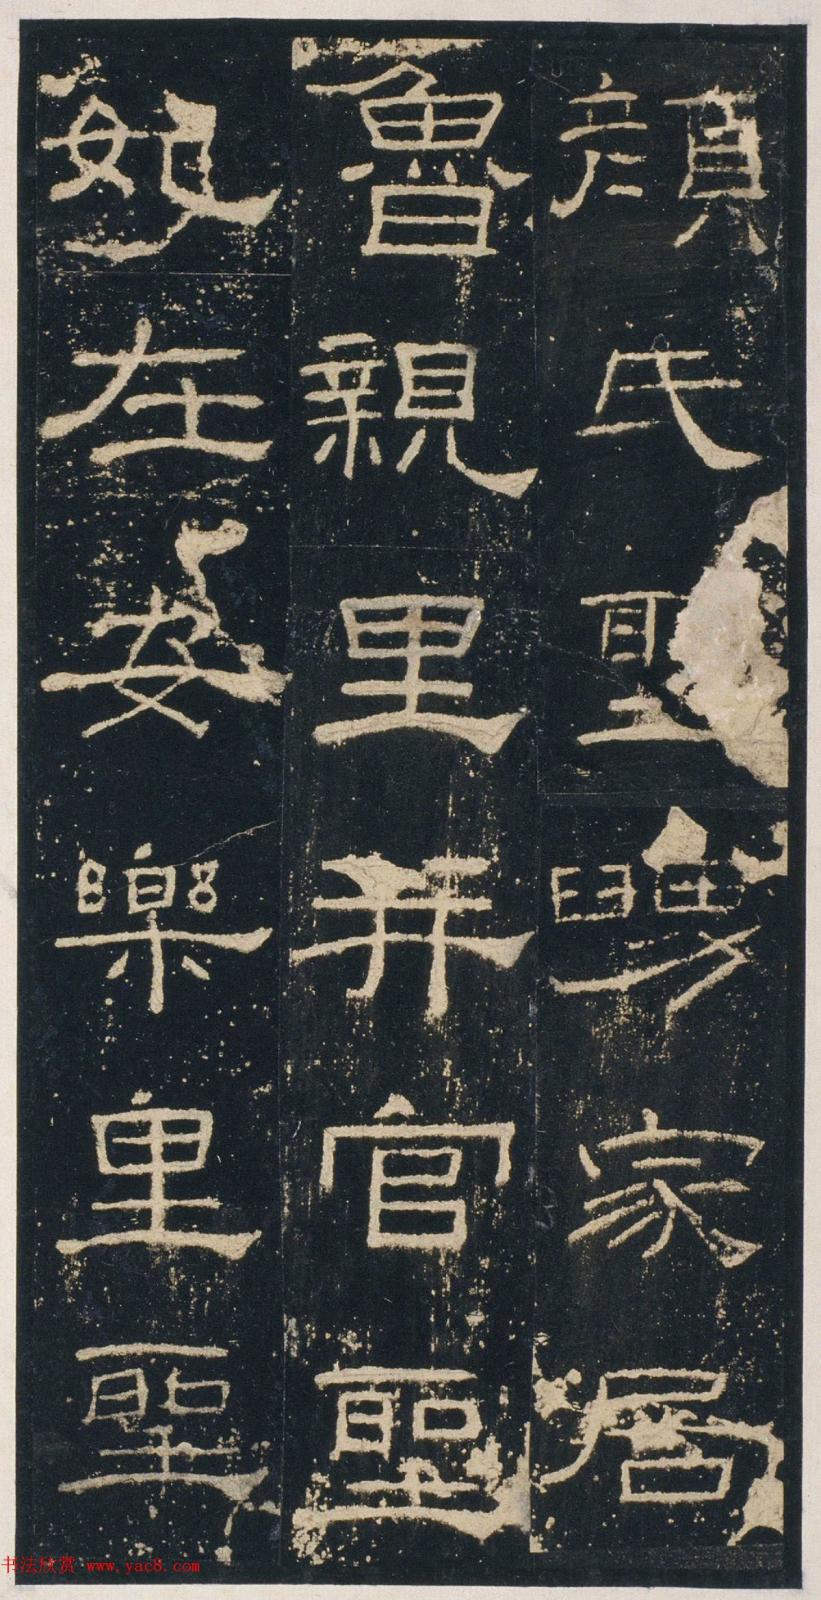 顏氏聖舅家居
魯親里并官聖
妃在安樂里聖
书法欣赏 www.yac8.com